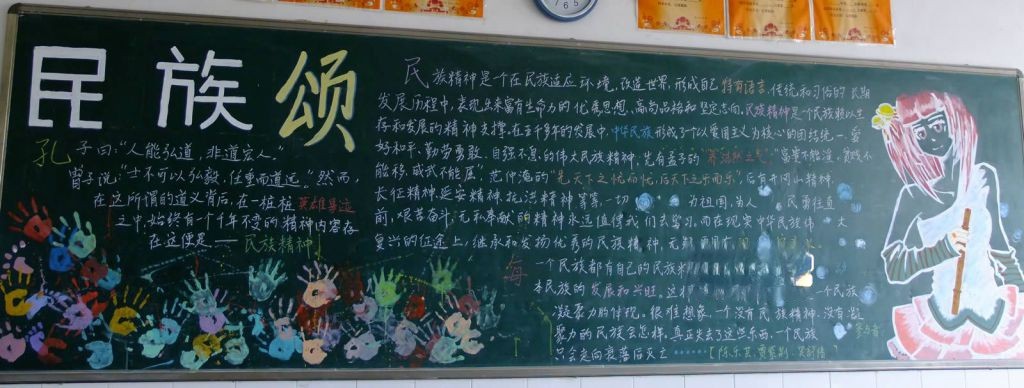 民族颂
孔子曰："人能弘道，非道宏人。"
曾子说："士不可以弘毅，任重而道远。"然而，
在这所谓的道义背后，在一桩桩英雄事迹
之中，始终有一个千年不变的精神内容存
在这便是——民族精神
民族精神是一个在民族适应环境，改造世界，形成自己特有语言、传统和习俗的长期
发展历程中，表现出来富有生命力的优秀思想，高尚品格和坚定志向，民族精神是一个民族赖以生
存和发展的精神支撑，在五千多年的发展中，中华民族形成了个以爱国主义为核心的团结统一，爱
好和平、勤劳勇敢、自强不息的伟大民族精神，先有孟子的"富贵不能淫，贫贱不
能移，威武不能屈"范仲淹的"先天下之忧而忧，后天下之乐而乐"，后有井冈山精神，
长征精神，延安精神，抗洪精神等等，一切 为祖国，为人 民勇往直
前，艰苦奋斗，无私奉献的精神永远值得我们去学习，而在现实中华民族伟 大
复兴的征途上，继承和发扬优秀的民族精神，无
每一个民族都有自己的民族精
本民族的发展和兴旺，这种 一个民族
凝聚力的体现，很难想象一个没有民族精神，没有凝
聚力的民族会怎样，真正失去了这些东西，一个民族
只会走向衰落后灭亡……